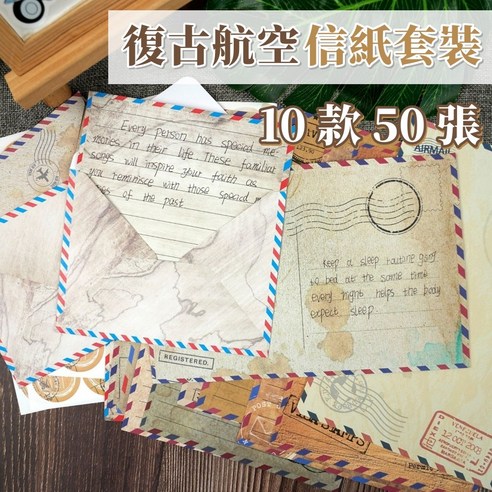 復古航空信紙套裝
10款50張
AIRMAIL
Every person has special me-
mories in their life. These familiar
songs will inspire your faith as
you reminisce with those special
of the past
keep a sleep routine going
to bed at the same time
every night helps the body
expect sleep.
REGISTERED.
VENEZUELA
12 OCT 2003